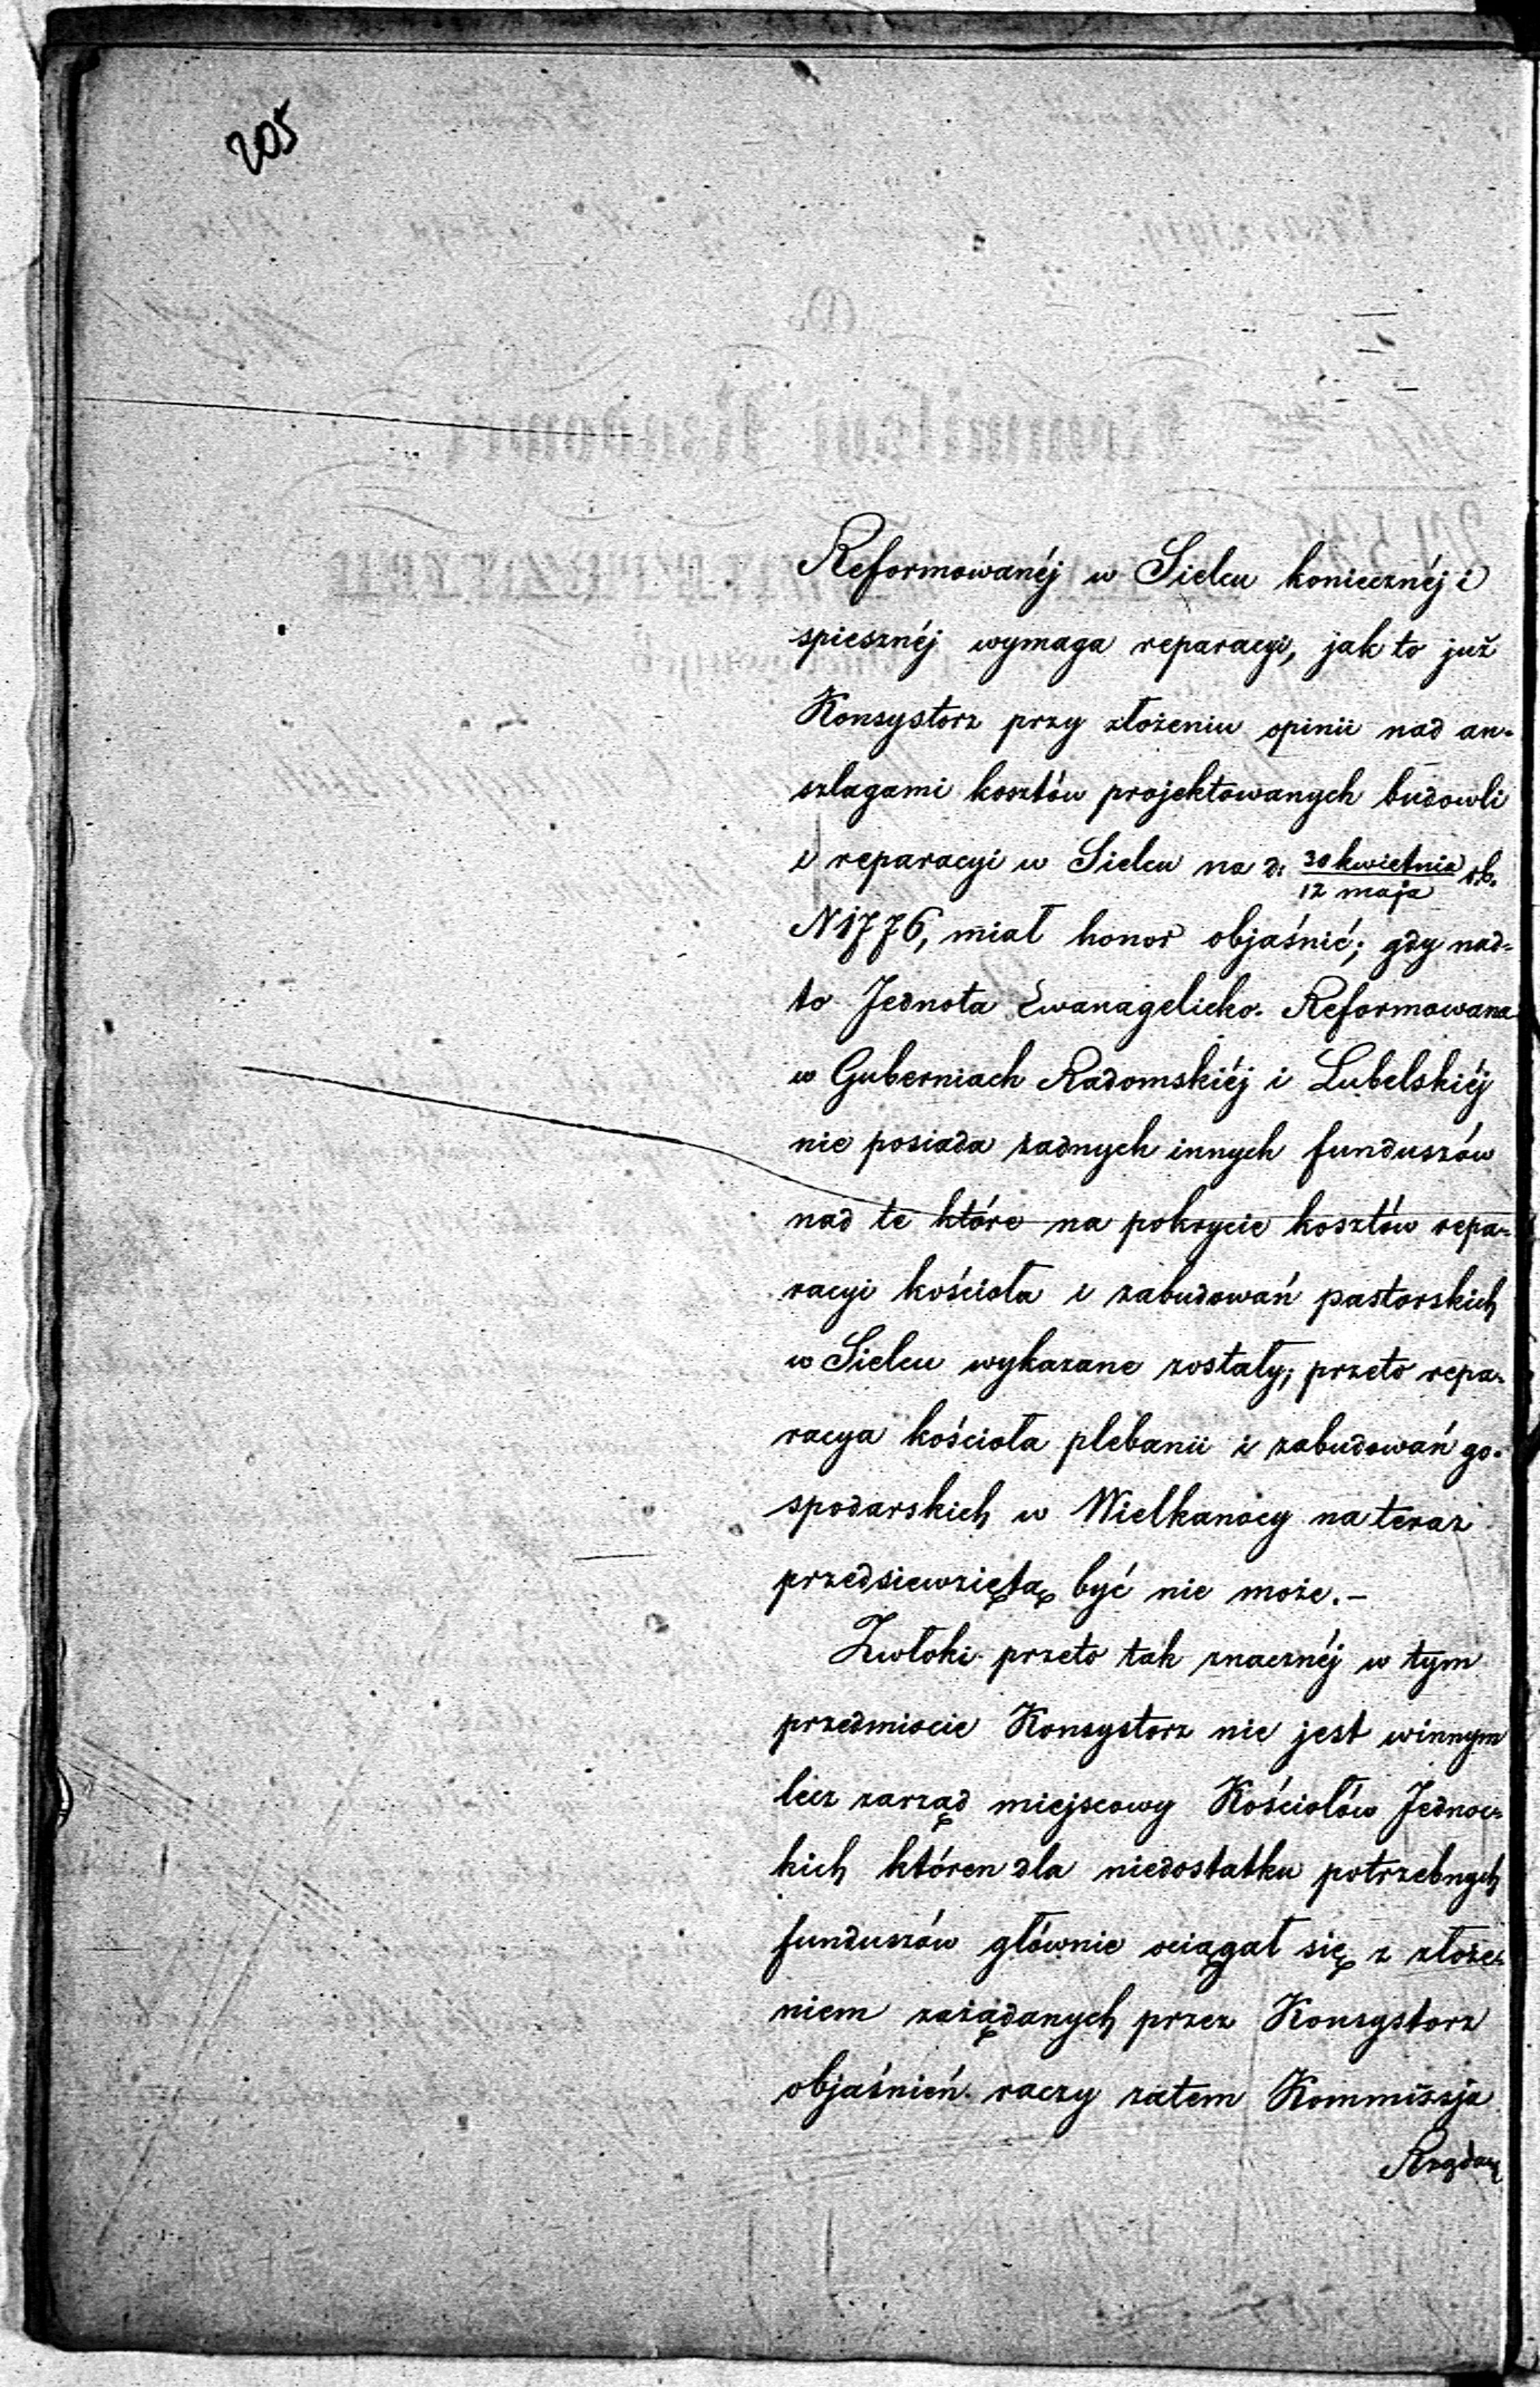 205
Reformowanéj w Sielcu koniecznéj i
spiesznéj wymaga reparacyi, jak to już
Konsystorz przy złożeniu opinii nad an-
szlagami kosztów projektowanych budowli
i reparacyi w Sielcu na d. 30 kwietnia / 12 maja r.b.
N 1776, miał honor objaśnić; gdy nad-
to Jednota Ewanagelicko-Reformowana
w Guberniach Radomskiéj i Lubelskiéj
nie posiada żadnych innych funduszów
nad te które na pokrycie kosztów repa-
racyi kościoła i zabudowań pastorskich
w Sielcu wykazane zostały; przeto repa-
racya kościoła plebanii i zabudowań go-
spodarskich w Wielkanocy na teraz
przedsiewziętą być nie może.-
Zwłoki przeto tak znacznéj w tym
przedmiocie Konsystorz nie jest winnym
lecz zarząd miejscowy Kościołów Jednoc-
kich któren dla niedostatku potrzebnych
funduszów głównie ociągał się z złoże-
niem zażądanych przez Konsystorz
objaśnień. raczy zatem Kommissja
Rządow